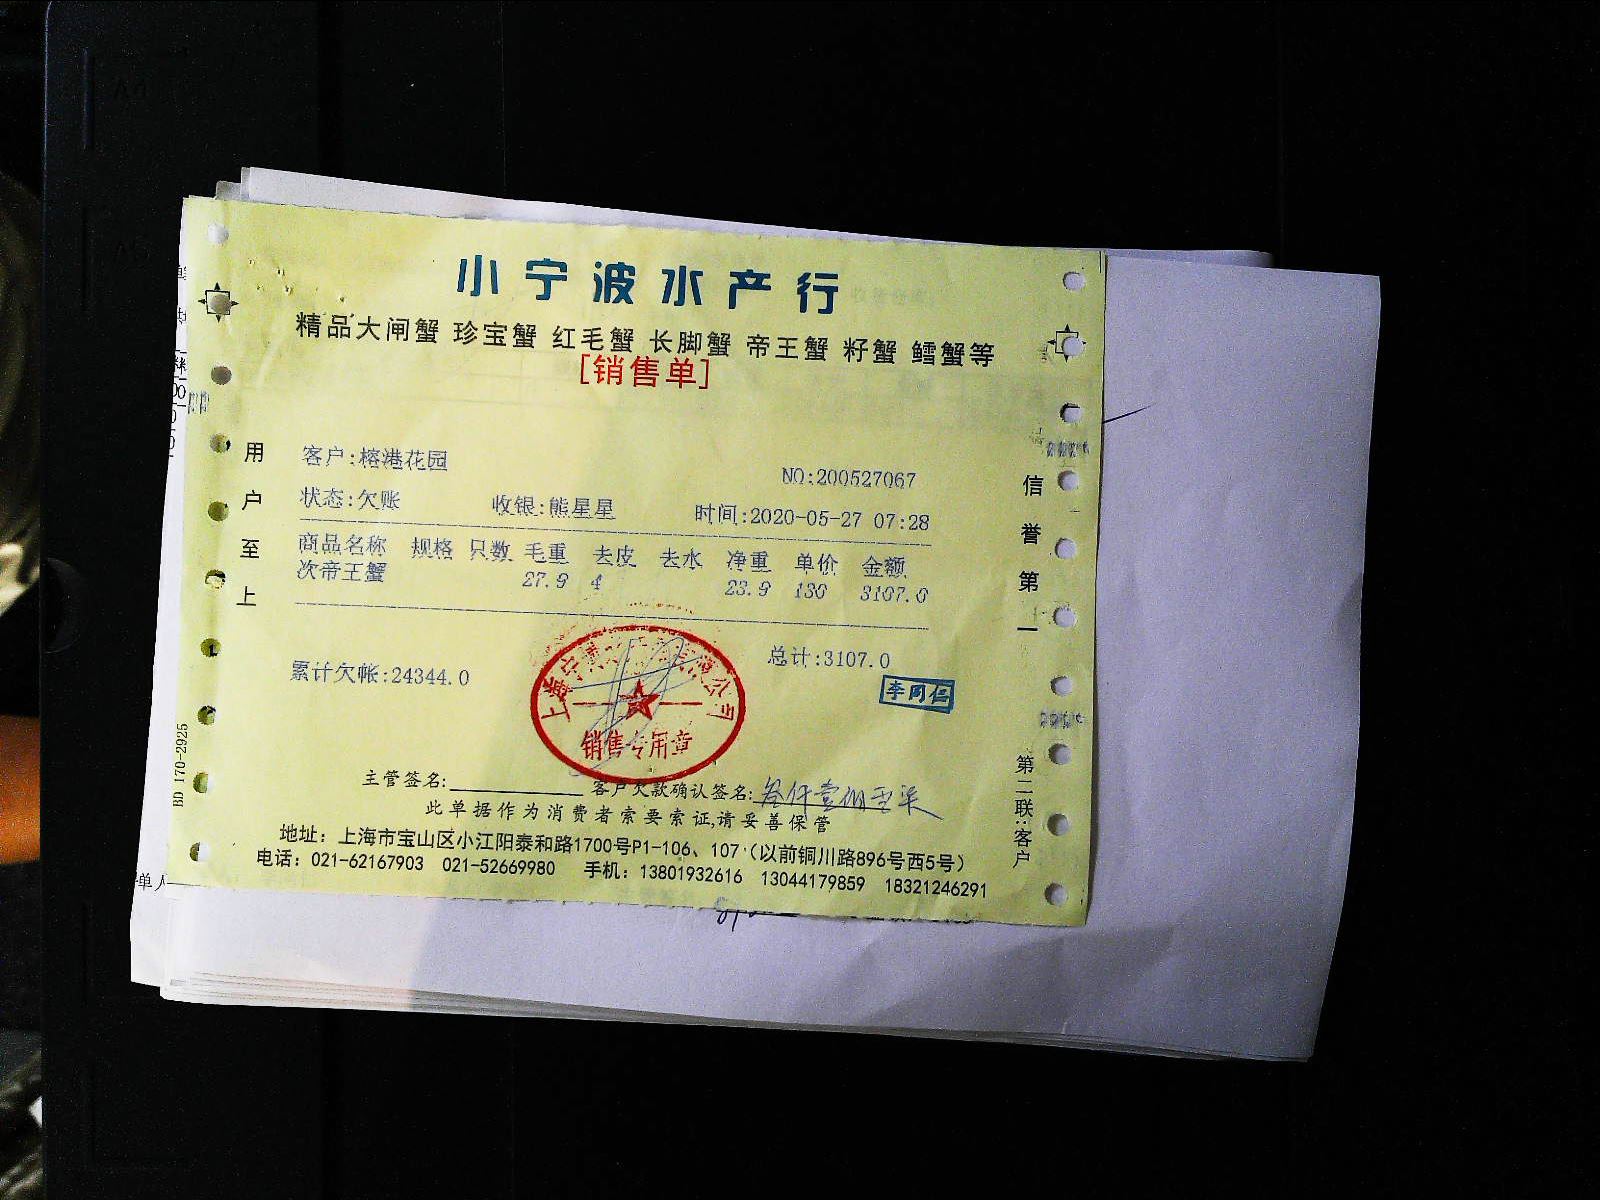 小宁波水产行
精品大闸蟹 珍宝蟹 红毛蟹 长脚蟹 帝王蟹 籽蟹 鳕蟹等
[销售单]
用户至上
客户:榕港花园
NO:200527067
状态:欠账 收银:熊星星 时间:2020-05-27 07:28
商品名称 规格 只数 毛重 去皮 去水 净重 单价 金额
次帝王蟹 27.9 4 23.9 130 3107.0
累计欠帐:24344.0 总计:3107.0
李同仁
销售专用章
主管签名: 客户欠款确认签名:
此单据作为消费者索要索证,请妥善保管
地址：上海市宝山区小江阳泰和路1700号P1-106、107（以前铜川路896号西5号）
电话：021-62167903 021-52669980 手机：13801932616 13044179859 18321246291
信誉第一
第二联:客户
BD 170-2925
单人